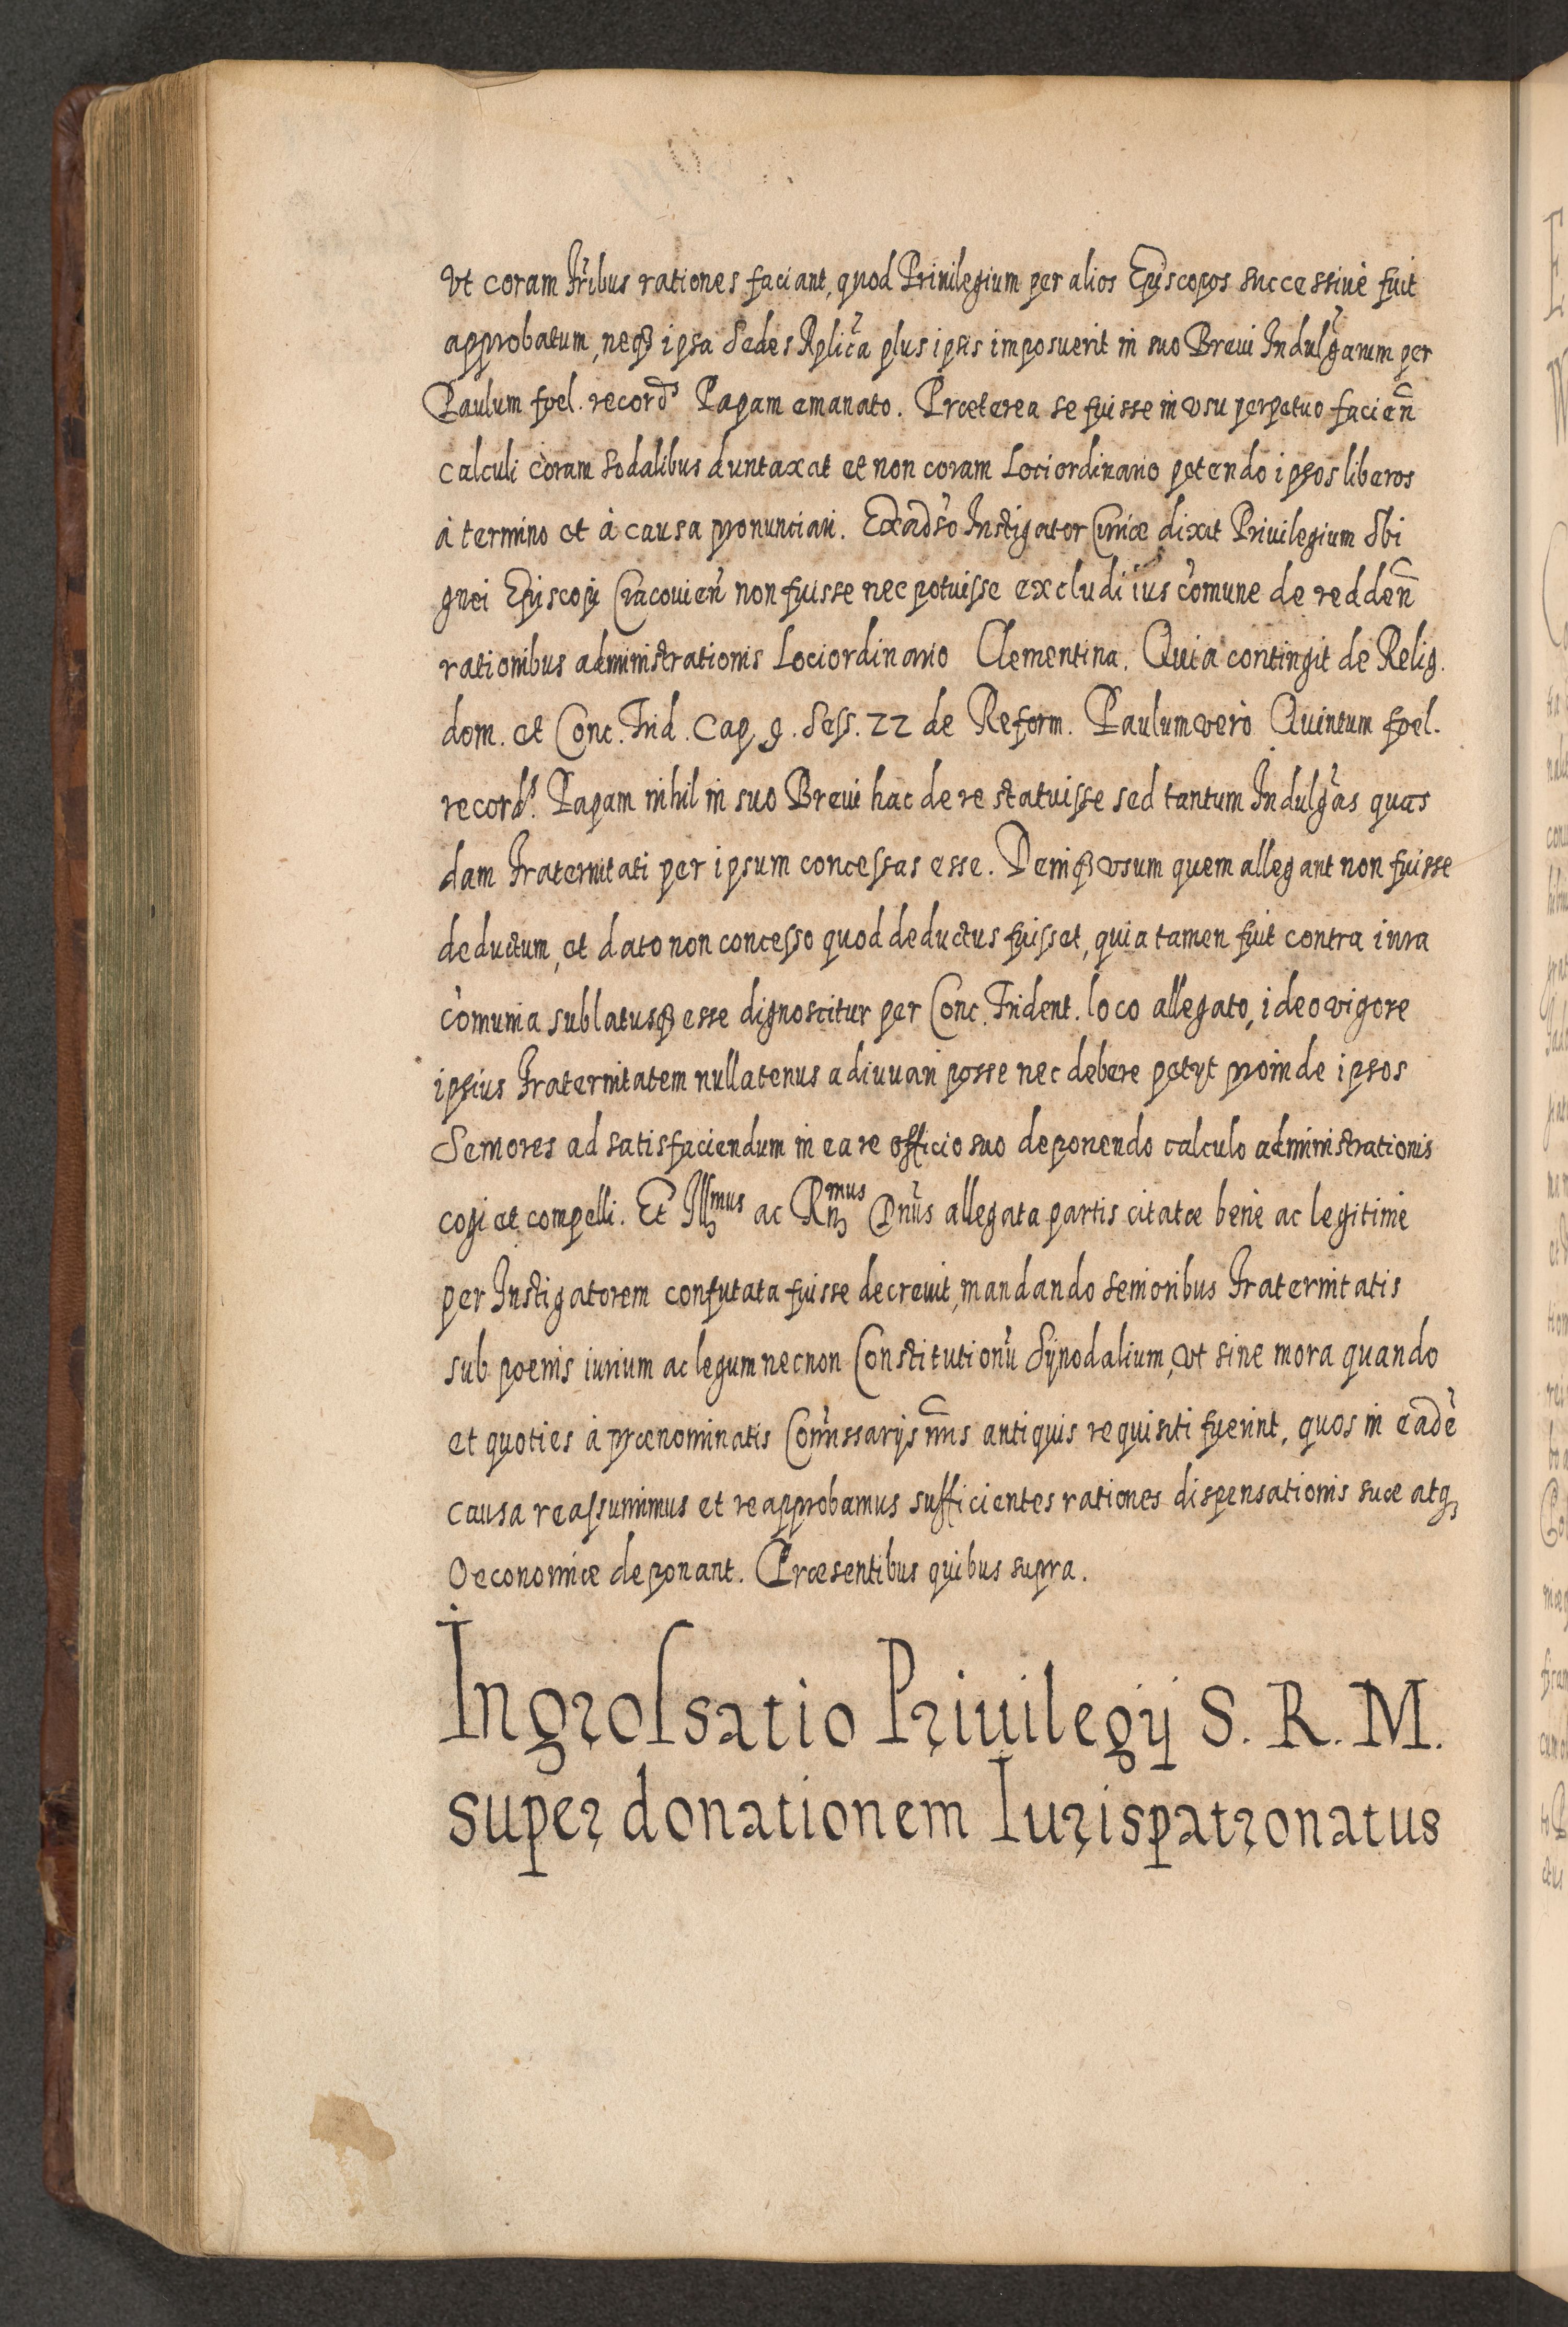 vt coram fribus rationes faciant, quod Priuilegium per alios Episcopos successiuè fuit
approbatum, neq ipsa Sedes Aplica plus ipsis imposuerit in suo Breui Indulgarum per
Paulum foel. record Papam emanato. Præterea se fuisse in vsu perpetuo facien
calculi coram sodalibus duntaxat et non coram Lociordinario petendo ipsos liberos
à termino et à causa pronunciari. Exaduso Instigator Curiæ dixit Priuilegium Sbi
gnei Episcopi Cracouien non fuisse nec potuisse excludi ius comune de redden
rationibus administrationis Lociordinario Clementina. Quia contingit de Relig.
dom. et Conc. Trid. Cap. 9. Sess. 22 de Reform. Paulum verò Quintum foel.
record. Papam nihil in suo Breui hac de re statuisse sed tantum Indulgas quas
dam fraternitati per ipsum concessas esse. Deniq vsum quem allegant non fuisse
deductum, et dato non concesso quod deductus fuisset, quia tamen fuit contra iura
comunia sublatusq esse dignoscitur per Conc. Trident. loco allegato, ideo vigore
ipsius fraternitatem nullatenus adiuuari posse nec debere petyt proinde ipsos
Seniores ad satisfaciendum in ea re officio suo deponendo calculo administrationis
cogi et compelli. Et Illmus ac Rnmus Dnus allegata partis citatæ benè ac legitimè
per Instigatorem confutata fuisse decreuit, mandando senioribus fraternitatis
sub poenis iurium ac legum necnon Constitutionu Synodalium, vt sine mora quando
et quoties à prænominatis Comissarijs nris antiquis requisiti fuerint, quos in eade
causa reassumimus et reapprobamus sufficientes rationes dispensationis suæ atq
Oeconomiæ deponant. Præsentibus quibus supra.
Ingrossatio Priuilegij S. R. M.
super donationem Iurispatronatus